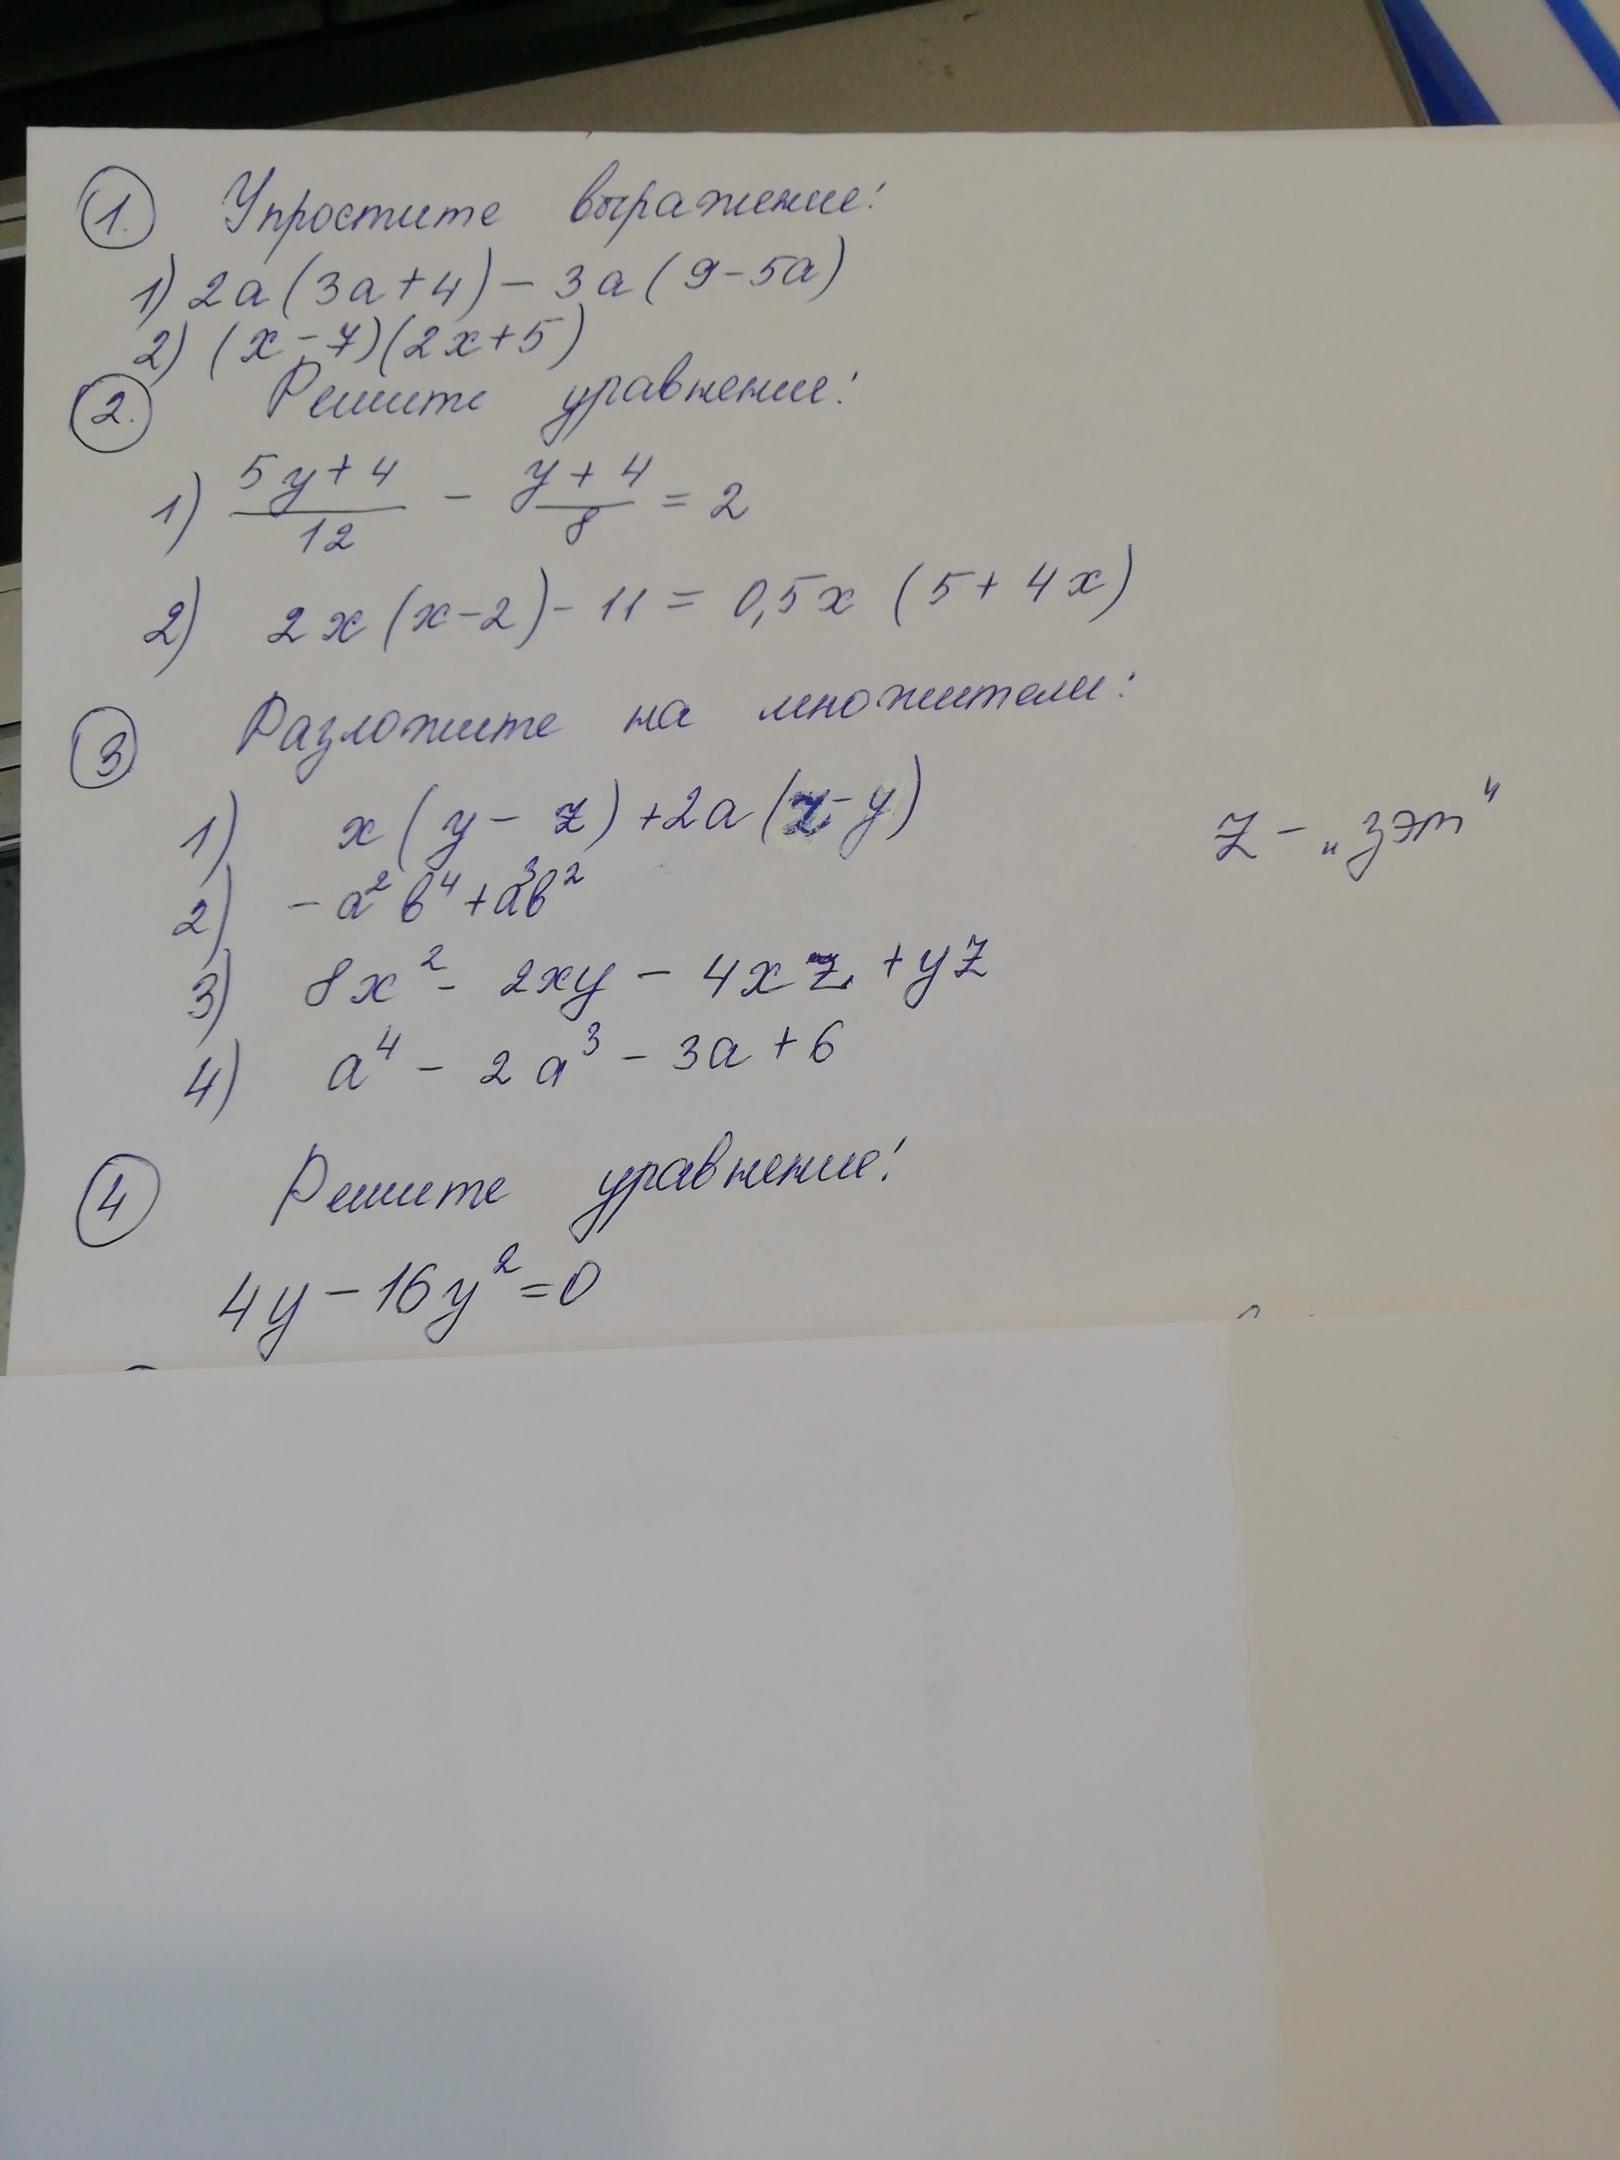 1. Упростите выражение:
1) 2a(3a+4) - 3a(9-5a)
2) (x-7)(2x+5)
2. Решите уравнение:
1) \frac{5y+4}{12} - \frac{y+4}{8} = 2
2) 2x(x-2) - 11 = 0,5x (5+4x)
3 Разложите на множители:
1) x(y-z)+2a(z-y)
z - „зэт"
2) -a²b⁴+a³b²
3) 8x² - 2xy - 4xz + yz
4) a⁴ - 2a³ - 3a + 6
4 Решите уравнение:
4y - 16y² = 0